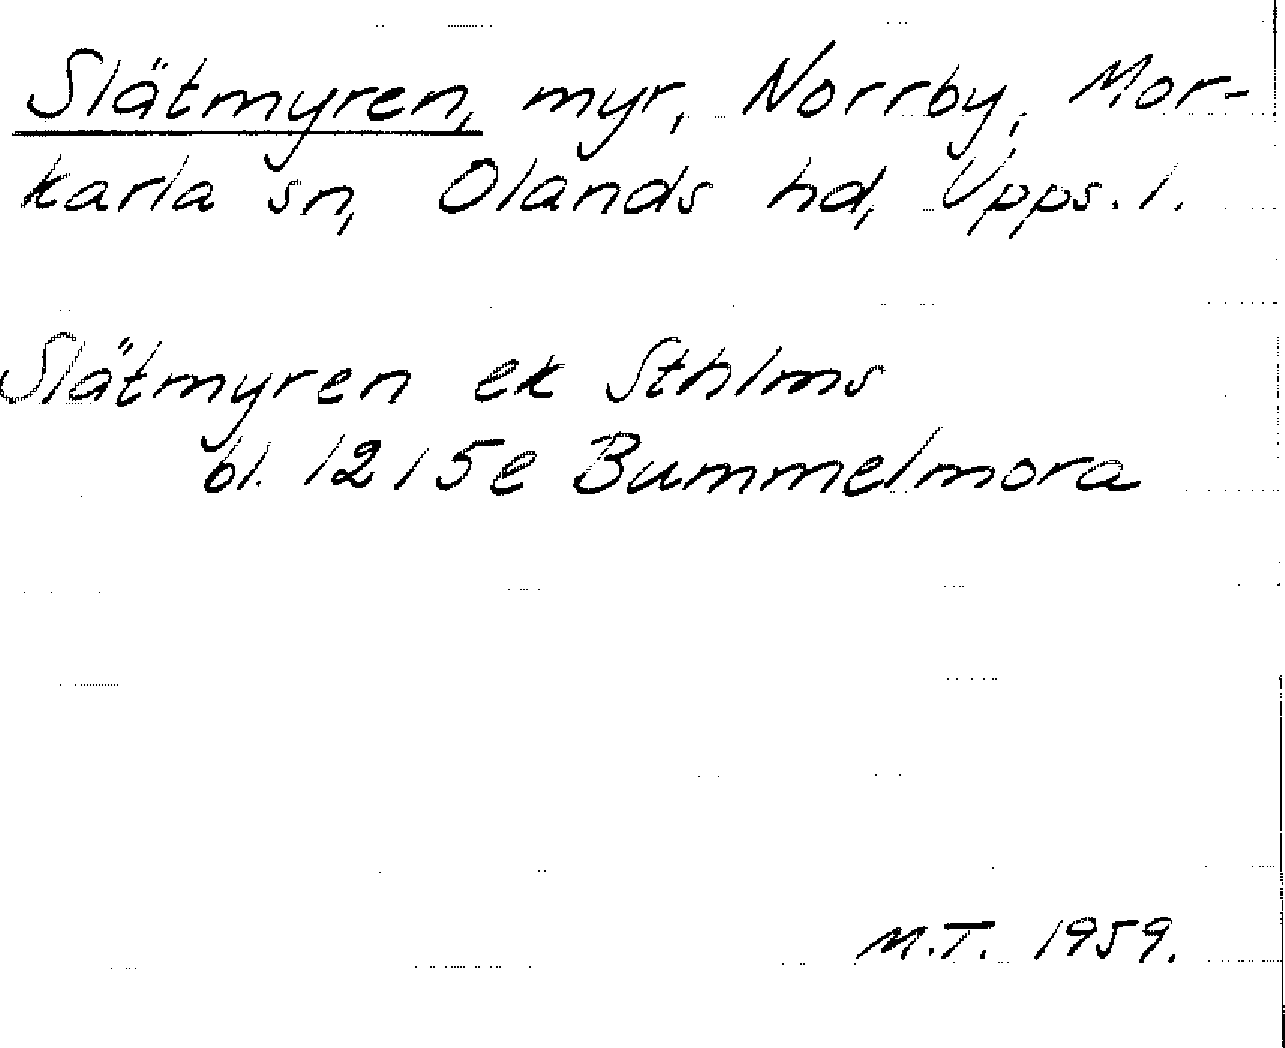 Slätmyren, myr, Norrby, Mor-
karla sn, Olands hd, Upps. l.
Slätmyren ek Sthlms
bl. 12 I 5e Bummelmora
M.T. 1959.